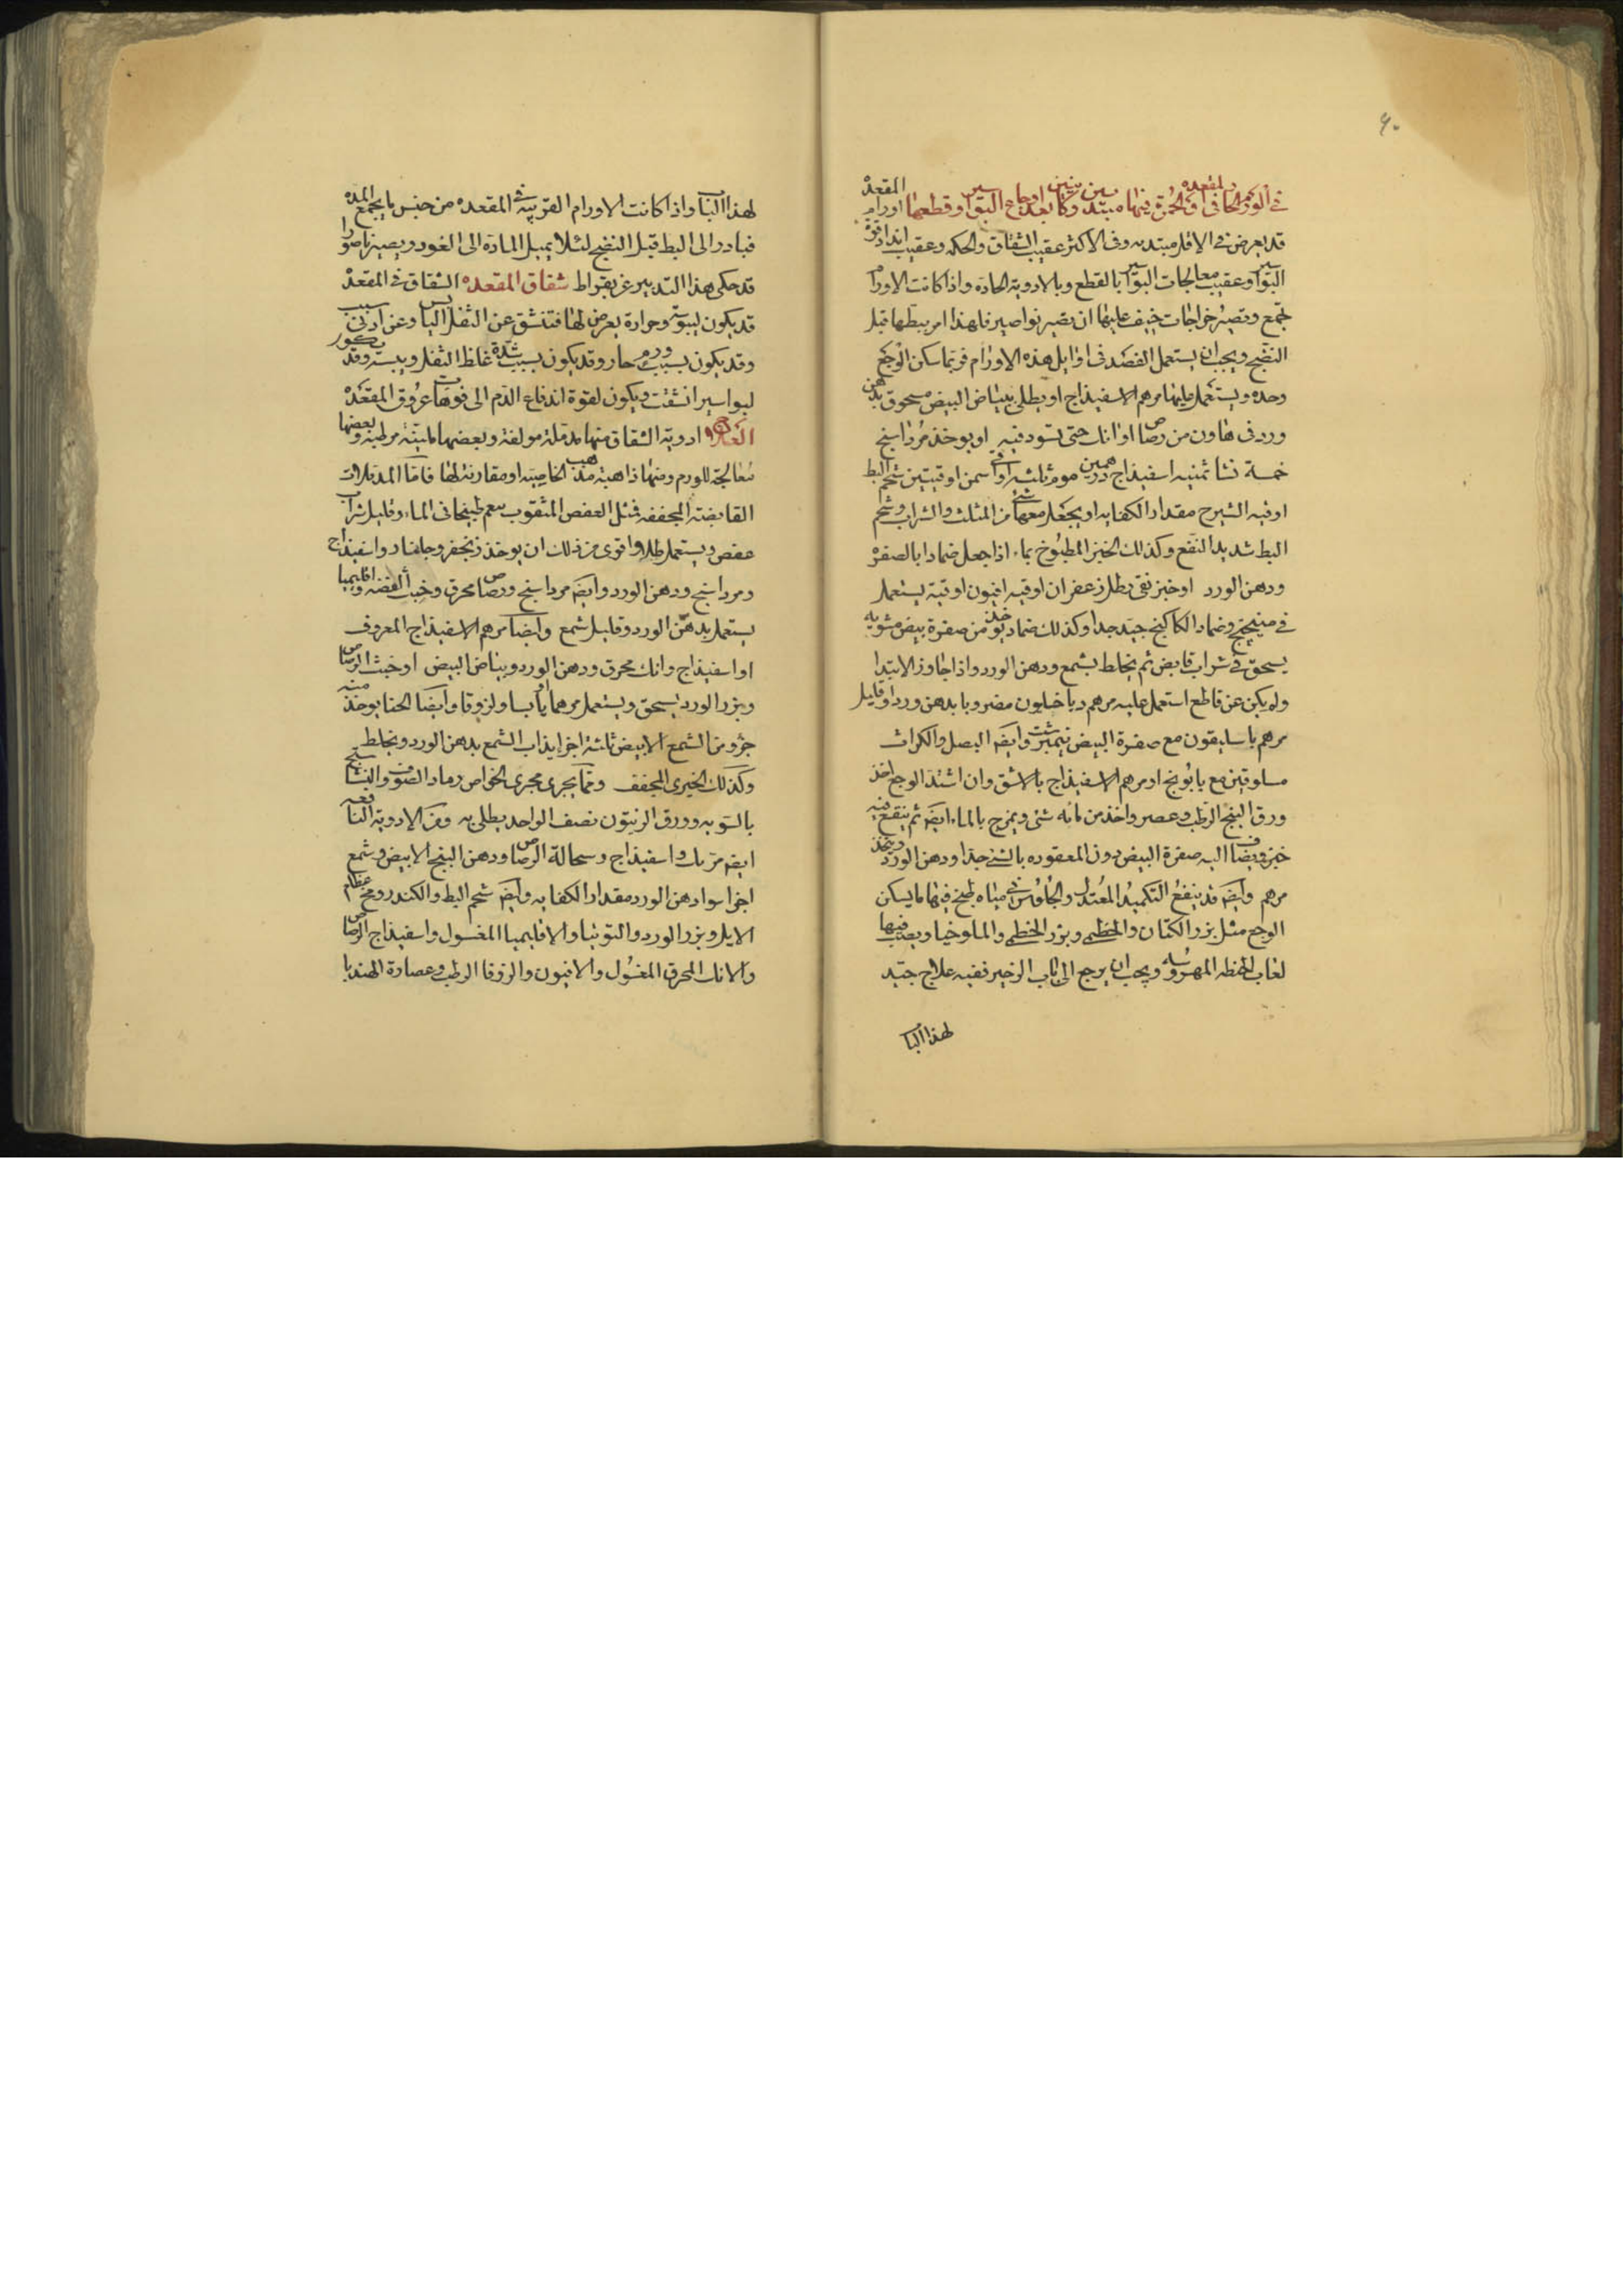 ٩٠
في الورم الحار في المقعدة والحمرة فيها مبتدئين وكائنين بعد اوجاع البواسير او قطعها اورام المقعدة
قد يعرض في الاقل مبتديه وفي الاكثر عقيب الشقاق والحكه وعقيب انداد فوق
البواسير وعقيب معالجات البواسير بالقطع وبالادوية الحاده واذا كانت الاورام
تجمع وتصير خراجات خيف عليها ان تصير نواصير فلهذا امر ببطها قبل
النضج ويجب ان يستعمل الفصد في اوايل هذه الاورام فربما سكن الوجع
وحده ويستعمل عليها مرهم الاسفيذاج او يطلى ببياض البيض مسحوق بدهن
ورد في هاون من رصاص او انك حتى تسود فيه او يوخذ مرداسنج
خمسة نشا ثمنيه اسفيذاج درهمين موم ثلثة اواقي سمن اوقيتين شحم البط
اوقيه الشيرج مقدار الكفايه او يجعل معها شي من المثلث والشراب وشحم
البط شديد النفع وكذلك الخبز المطبوخ بماء اذا جعل ضمادا بالصفرة
ودهن الورد او خبز نقى رطل زعفران اوقيه افيون اوقية يستعمل
في ميبختج وضماد الكاكنج جيد جدا وكذلك ضماد يوخذ من صفرة بيض مشويه
يسحق في شراب قابض ثم يخلط بشمع ودهن الورد واذا جاوز الابتدا
ولم يكن عن قاطع استعمل عليه مرهم دياخيلون مضروبا بدهن ورد او قليل
مرهم باسليقون مع صفرة البيض نيمبرشت وايضا البصل والكراث
مسلوقين مع بابونج او مرهم الاسفيذاج بالاشق وان اشتد الوجع اخذ
ورق البنج الرطب وعصر واخذ من مائه شئ ويمزج بالماء ايضا ثم ينقع فيه
خبز ويضاف اليه صفرة البيض دون المعقوده بالشي جدا ودهن الورد ويتخذ
مرهم وايضا قد ينفع التكميد المعتدل والجلوس في مياه طبخ فيها ما يسكن
الوجع مثل بزر الكتان والخطمى وبزر الخطمى والملوخيا ويصب فيها
لعاب الحنطه المهروسه ويجب ان يرجع الى باب الزحير ففيه علاج جيد
لهذا الباب
لهذا الباب واذا كانت الاورام القريبة في المقعده من جنس ما يجمع المده
فبادر الى البط قبل النضج لئلا يميل المادة الى الغور ويصير ناصورا
قد حكى هذا التدبير عن بقراط شقاق المقعده الشقاق في المقعدة
قد يكون ليبوسة وحرارة يعرض لها فتنشق عن الثفل اليابس وعن ادنى سبب
وقد يكون بسبب ورم حار وقد يكون بسبب شدة غلظ الثفل ويبسه وقد يكون
لبواسير انشقت ويكون لقوة اندفاع الدم الى فوهات عروق المقعدة
العلاج ادوية الشقاق منها مدملة مولفة وبعضها ملينة مرطبه وبعضها
معالجة للورم ومنها ذاهبة مذهب الخاصية او مقارنه لها فاما المدملات
القابضة المجففه فمثل العفص المثقوب ينعم طبخها في الماء وقليل شراب
عفص ويستعمل طلا واقوى من ذلك ان يوخذ زنجفر وجلنار واسفيذاج
ومرداسنج ودهن الورد وايضا مرداسنج ورصاص محرق وخبث الفضه واقليميا
يستعمل بدهن الورد وقليل شمع وايضا مرهم الاسفيذاج المعروف
او اسفيذاج وانك محرق ودهن الورد وبياض البيض او خبث الرصاص
وبزر الورد يسحق ويستعمل مرهما او يابسا ولزوقا وايضا الحنا يوخذ منه
جزو من الشمع الابيض ثلثة اجزا يذاب الشمع بدهن الورد ويخلط
وكذلك الخيرى المجفف ومما يجرى مجرى الخواص رماد الصوف والشبث
بالسويه وورق الزيتون نصف الواحد يطلى به ومن الادوية النافعه
ايضا مرتك واسفيذاج وسحالة الرصاص ودهن البنج الابيض وشمع
اجزا سوا دهن الورد مقدار الكفايه وايضا شحم البط والكندر ومخ عظام
الايل وبزر الورد والتوتيا والاقليميا المغسول واسفيذاج الرصاص
والانك المحرق المغسول والافيون والزوفا الرطب وعصارة الهندبا